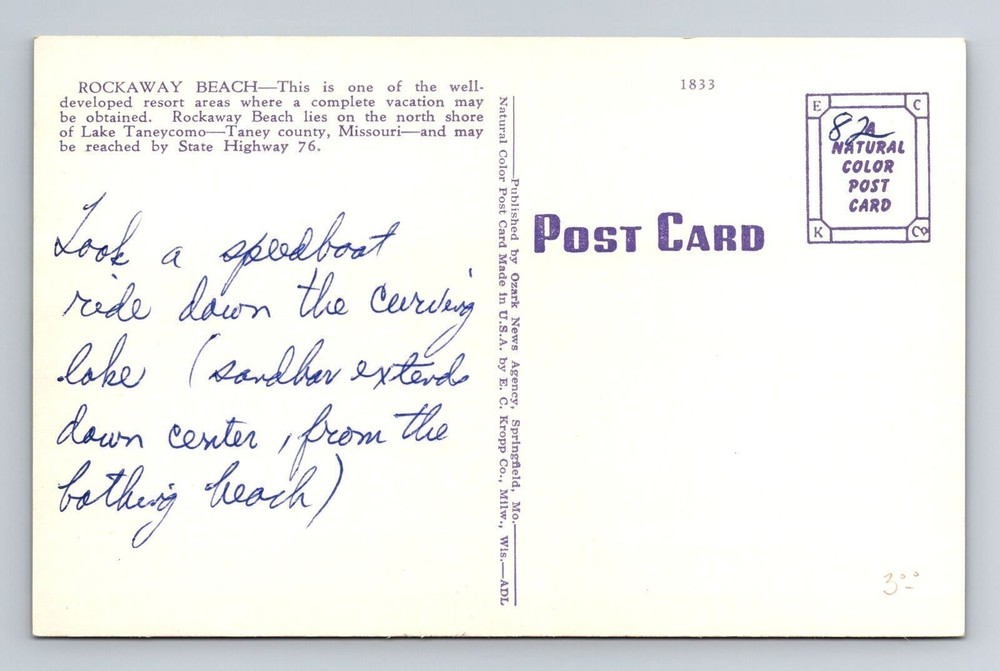 ROCKAWAY BEACH—This is one of the well-
developed resort areas where a complete vacation may
be obtained. Rockaway Beach lies on the north shore
of Lake Taneycomo—Taney county, Missouri—and may
be reached by State Highway 76.
Look a speedboat
ride down the curving
lake (sandbar extends
down center, from the
bathing beach)
—Published by Ozark News Agency, Springfield, Mo.—
Natural Color Post Card Made in U.S.A. by E. C. Kropp Co., Milw., Wis.—ADL
1833
POST CARD
E C
82
A
NATURAL
COLOR
POST
CARD
K Co
3.00